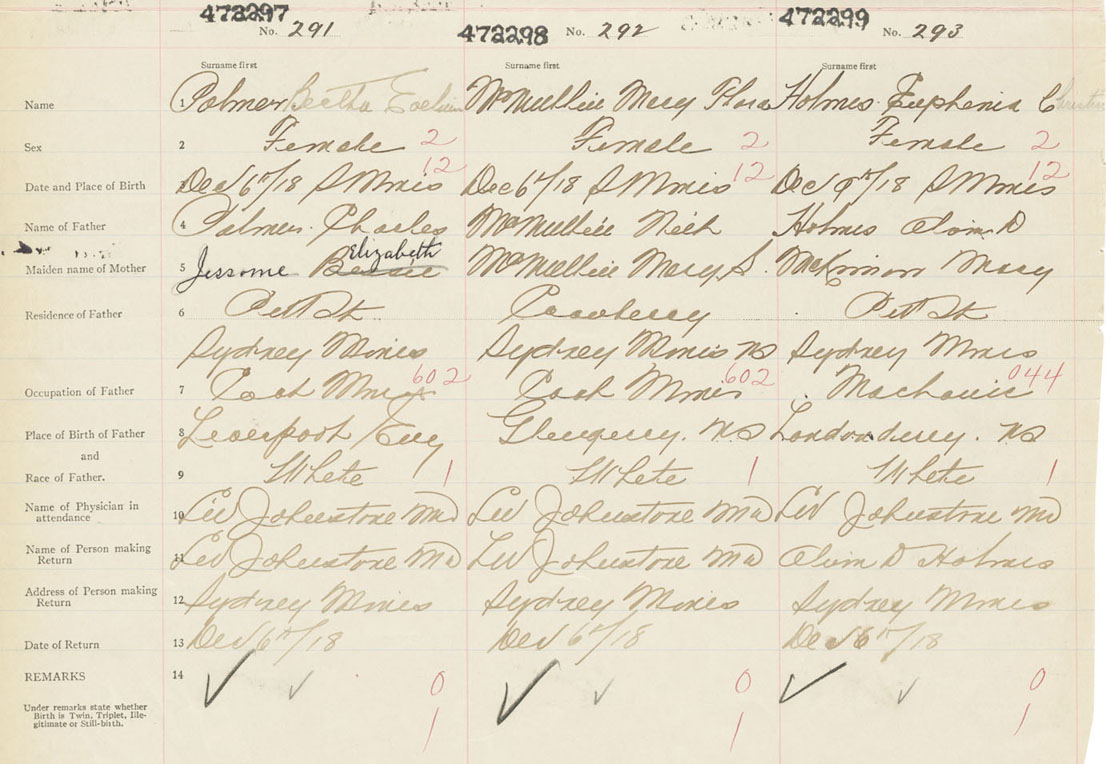 472297 No. 291 472298 No. 292 472299 No. 293
Surname first Surname first Surname first
Name 1 Palmer Bertha McMullin Mary Flora Holmes Euphenia C
Sex 2 Female 2 Female 2 Female 2
12 12 12
Date and Place of Birth Dec 6th/18 S Mines Dec 6th/18 S Mines Dec /18 S Mines
Name of Father 4 Palmer Charles McMullin Neil Holmes D
Elizabeth
Maiden name of Mother 5 Jessome Bessie McMullin Mary S. McKinnon Mary
Residence of Father 6 Pitt St Pitt St
Sydney Mines Sydney Mines NS Sydney Mines
602 602 044
Occupation of Father 7 Coal Miner Coal Miner Machanic
Place of Birth of Father 8 Liverpool Eng Glengerry. NS Londonderry. NS
and
Race of Father. 9 White 1 White 1 White 1
Name of Physician in
attendance 10 LW Johnstone MD LW Johnstone MD LW Johnstone MD
Name of Person making
Return 11 LW Johnstone MD LW Johnstone MD D Holmes
Address of Person making
Return 12 Sydney Mines Sydney Mines Sydney Mines
Date of Return 13 Dec 6th/18 Dec 6th/18 Dec 6th/18
REMARKS 14 0 0 0
Under remarks state whether
Birth is Twin, Triplet, Ille-
gitimate or Still-birth. 1 1 1